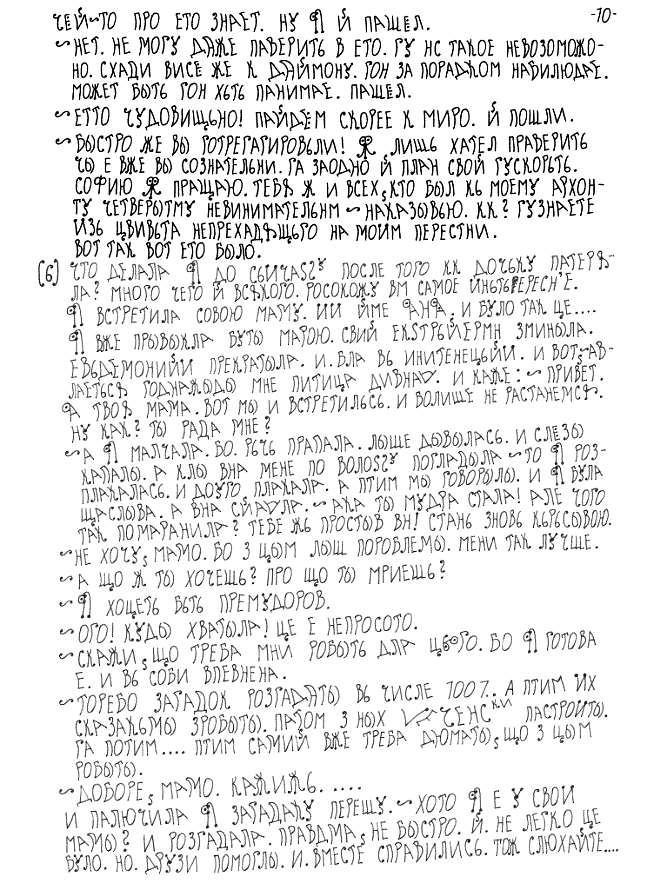 -10-
ЧЕЙ~ТО ПРО ЕТО ЗНАЕТ. НУ Я Й ПАШЕЛ.
~НЕТ. НЕ МОГУ ДАЖЕ ПАВЕРИТЬ В ЕТО. ГУ НС ТАКОЕ НЕВОЗОМОЖО-
НО. СХАДИ ВИСЕ ЖЕ К ДАЙМОНУ. ГОН ЗА ПОРАДКОМ НАБИЛЮДАЕ.
МОЖЕТ БЫТЬ ГОН ХЬТЬ ПАНИМАЕ. ПАШЕЛ.
~ЕТТО ЧУДОВИЩЬНО! ПАЙДЕМ СКОРЕЕ К МИРО. Й ПОШЛИ.
~БЫСТРО ЖЕ ВЫ ГОТРЕГАГИРОВЫЛИ! Я, ЛИШЬ ХАТЕЛ ПРАВЕРИТЬ
ЧЫ Е ВЖЕ ВЫ СОЗНАТЕЛЬНИ. ГА ЗАОДНО Й ПЛАН СВОЙ ГУСКОРЫТЬ.
СОФИЮ Я ПРАЩАЮ. ТЕБЯ Ж И ВСЕХ, КТО БЫЛ КЬ МОЕМУ АРХОН-
ТУ ЧЕТВЕРЫТМУ НЕВИНИМАТЕЛЬНМ ~ НАКАЗЫВЬЮ. КК? ГУЗНАЕТЕ
ИЗЬ ЦВИВЬТА НЕПРЕХАДЯЩЬГО НА МОИМ ПЕРЕСТНИ.
ВОТ ТАК ВОТ ЕТО БЫЛО.
(6) ЧТО ДЕЛАЛА Я ДО СЬИЧАSZУ ПОСЛЕ ТОГО КК ДОЧЬКУ ПАТЕРЯ-
ЛА? МНОГО ЧЕГО Й ВСЯКОГО. РОСОКОЖУ ВМ САМОЕ
Я ВСТРЕТИЛА СОВОЮ МАМУ. ИИ ЙМЕ ЯНЯ. И БУЛО ТАК ЦЕ....
Я ВЖЕ ПРЫВЫКЛА БУТЫ МАРОЮ. СВИЙ ЕКSТРЫЙЕРМН ЗМИНЫЛА.
ЕВЬДЕМОНИЙИ ПРЕКРАТЫЛА. И. БЛА ВЬ ИНИТЕНЕЦЫЙИ. И ВОТ~ЯВ-
ЛАЕТЬСЯ ГОДНАЖЫДЫ МНЕ ПИТИЦА ДИВНАЯ. И КАЖЕ: ~ ПРИВЕТ.
Я ТВОЯ МАМА. ВОТ МЫ И ВСТРЕТИЛЬСЬ. И БОЛИШЕ НЕ РАСТАНЕМСЯ.
НУ КАК? ТЫ РАДА МНЕ?
~А Я МАЛЧАЛА. БО. РЬЧЬ ПРАПАЛА. ЛЫШЕ ДЫВЫЛАСЬ. И СЛЕЗЫ
КАПАЛЫ. А КЛЫ ВНА МЕНЕ ПО ВОЛОSZУ ПОГЛАДЫЛА ~ ТО Я РОЗ-
ПЛАКАЛАСЬ. И ДОУГО ПЛАКАЛА. А ПТИМ МЫ ГОВОРЫЛЫ. И Я БУЛА
ЩАСЛЫВА. А ВНА СИЯЛА. ~ АКА ТЫ МУДРА СТАЛА! АЛЕ ЧОГО
ТАК ПОМАРАНИЛА? ТЕБЕ ЖЬ ПРОСТЫВ ВН! СТАНЬ ЗНОВЬ КЬРЬСЫВОЮ.
~НЕ ХОЧУ, МАМО. БО З ЦЫМ ЛЫШ ПОРОБЛЕМЫ. МЕНИ ТАК ЛУЧШЕ.
~А ЩО Ж ТЫ ХОЧЕШЬ? ПРО ЩО ТЫ МРИЕШЬ?
~Я ХОЦЕТЬ БЫТЬ ПРЕМУДОРОВ.
~ОГО! КУДЫ ХВАТЫЛА! ЦЕ Е НЕПРОСОТО.
~СКАЖИ, ЩО ТРЕБА МНИ РОБЫТЬ ДЛЯ ЦЬОГО. БО Я ГОТОВА
Е. И ВЬ СОБИ ВПЕВНЕНА.
~ТОРЕБО ЗАГАДОК РОЗГАДАТЫ ВЬ ЧИСЛЕ 7007.. А ПТИМ ИХ
СКАЗАКЬМЫ ЗРОБЫТЫ. ПАТОМ З НЫХ ПАСТРОИТЫ.
ГА ПОТИМ.... ПТИМ САМИЙ ВЖЕ ТРЕБА ДЮМАТЫ, ЩО З ЦЫМ
РОБЫТЫ.
~ДОБОРЕ, МАМО. КАЖИЖЬ. ....
И ПАЛЮЧИЛА Я ЗАГАДАКУ ПЕРЕШУ. ~ ХОТО Я Е У СВОИ
МАМЫ? И РОЗГАДАЛА. ПРАВДМА, НЕ БЫСТРО. Й. НЕ ЛЕГКО ЦЕ
БУЛО. НО. ДРУЗИ ПОМОГЛЫ. И. ВМЕСТЕ СПРАВИЛИСЬ. ТОЖ СЛЮХАЙТЕ....